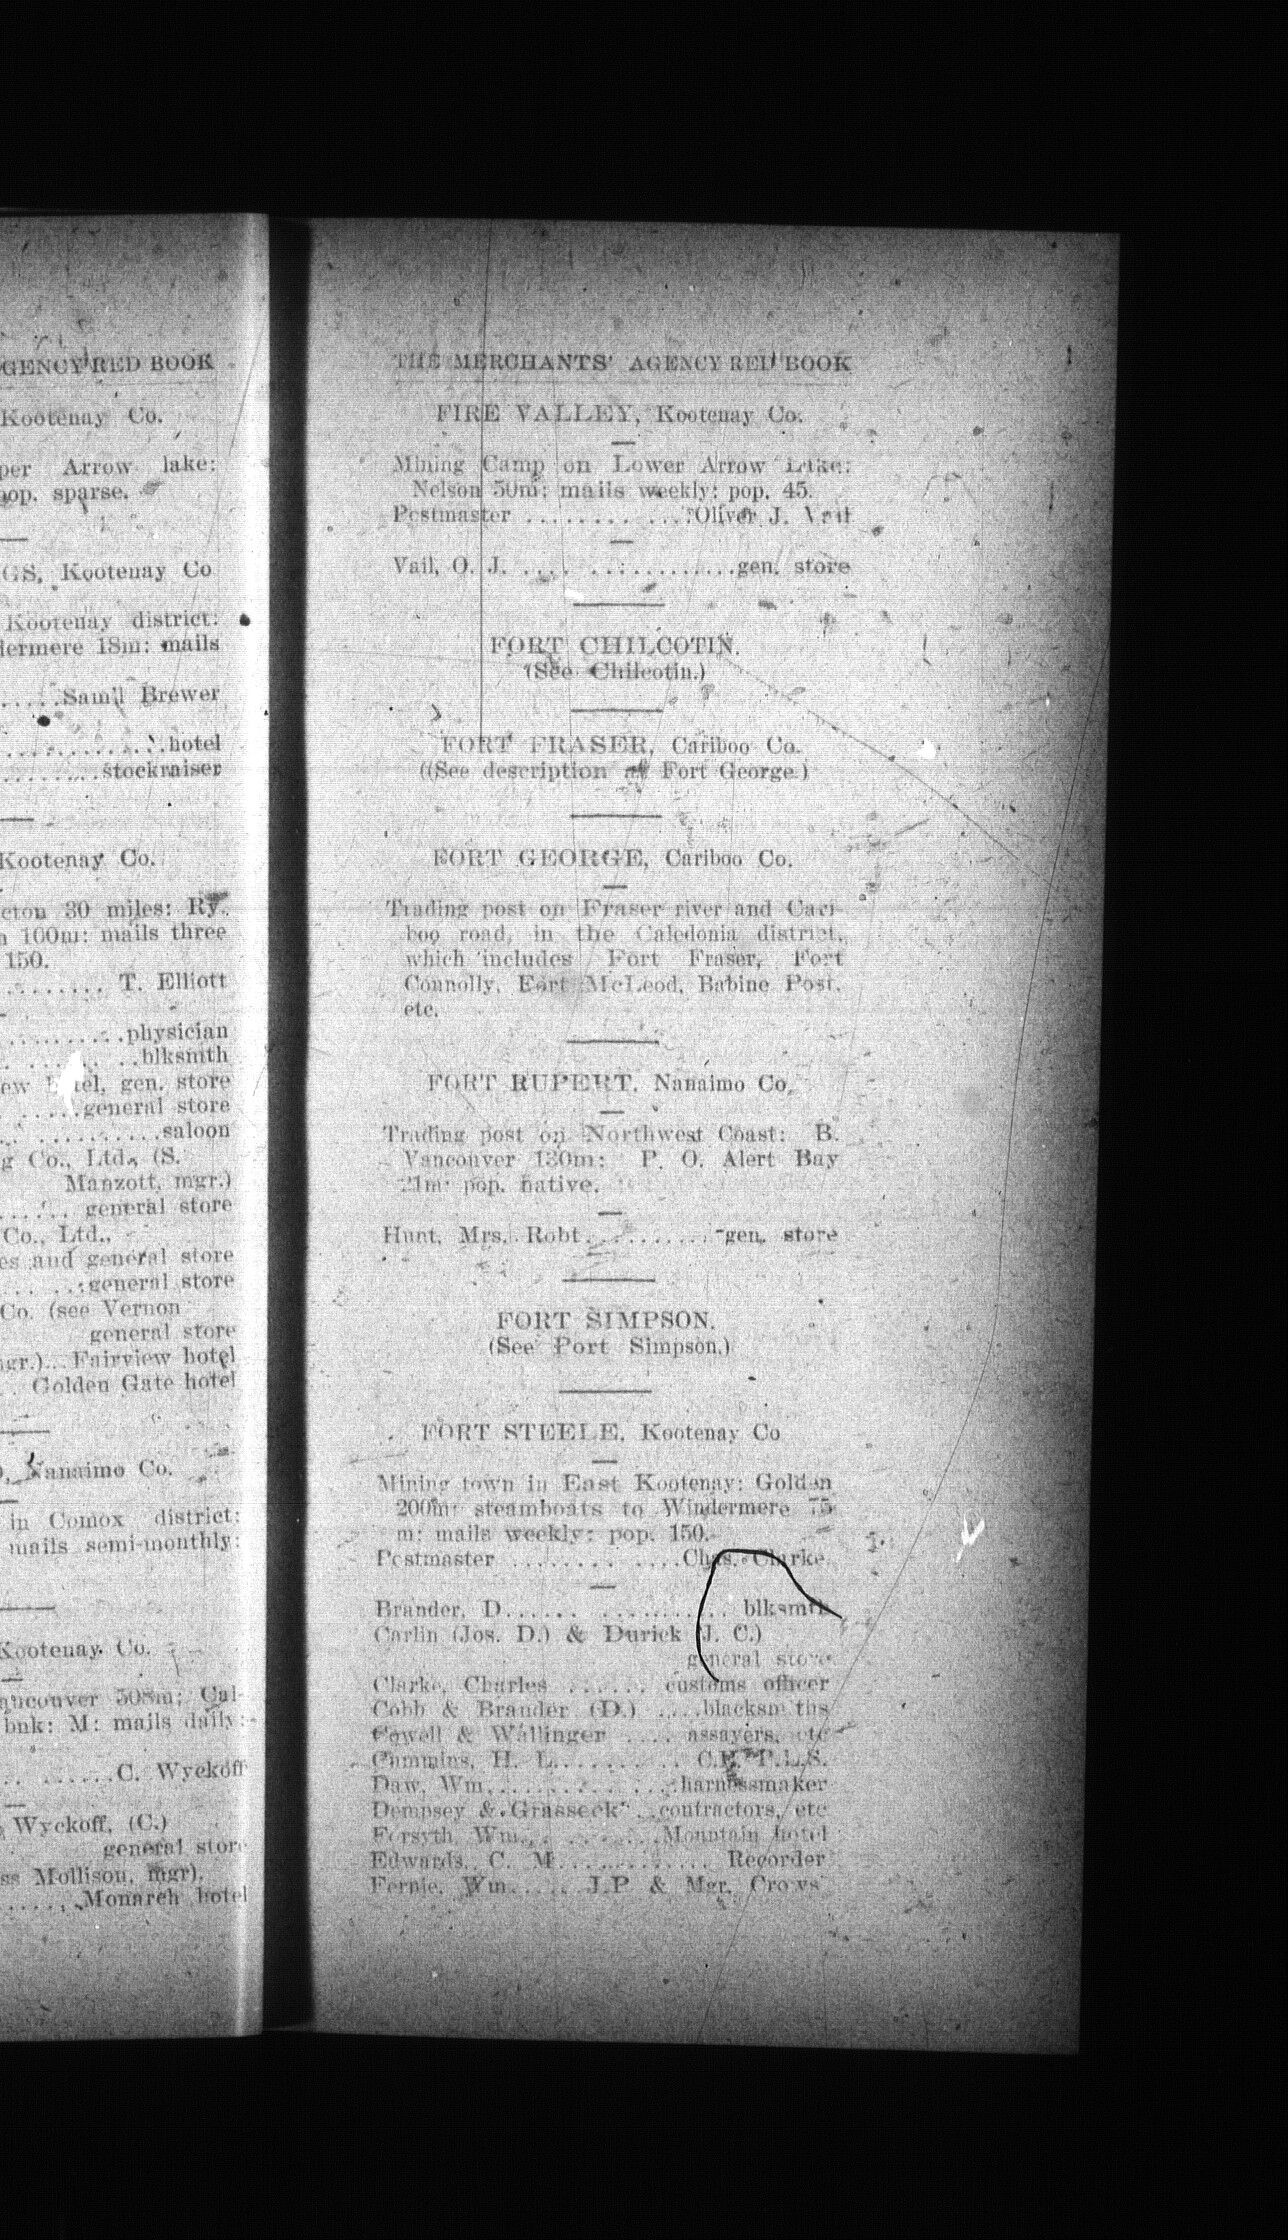 GENCY RED BOOK
Kootenay Co.
per Arrow lake:
pop. sparse.
GS, Kootenay Co
Kootenay district:
dermere 18m: mails
.....Sam'l Brewer
..............hotel
.........stockraiser
Kootenay Co.
cton 30 miles: Ry.
100m: mails three
150.
......... T. Elliott
..........physician
.. .. ..blksmth
ew tel, gen. store
......general store
.. ..........saloon
g Co., Ltd., (S.
Manzott, mgr.)
....... general store
Co., Ltd.,
es and general store
.... ...general store
Co. (see Vernon
general store
mgr.)... Fairview hotel
. Golden Gate hotel
, Nanaimo Co.
in Comox district:
mails semi-monthly:
Kootenay Co.
ancouver 508m; Cal-
bnk: M: mails daily:
.. ......C. Wyckoff
Wyckoff, (C.)
general store
ss Mollison, mgr).
.......Monarch hotel
THE MERCHANTS' AGENCY RED BOOK
FIRE VALLEY, Kootenay Co.
Mining Camp on Lower Arrow Lake:
Nelson 50m: mails weekly: pop. 45.
Postmaster ........ ....Oliver J. Vail
Vail, O. J. .... ............gen. store
FORT CHILCOTIN.
(See Chilcotin.)
FORT FRASER, Cariboo Co.
((See description at Fort George.)
FORT GEORGE, Cariboo Co.
Trading post on Fraser river and Cari-
boo road, in the Caledonia district,
which includes Fort Fraser, Fort
Connolly, Fort McLeod, Babine Post,
etc.
FORT RUPERT, Nanaimo Co.
Trading post on Northwest Coast: B.
Vancouver 130m: P. O. Alert Bay
21m: pop. native.
Hunt, Mrs. Robt........... gen. store
FORT SIMPSON.
(See Port Simpson.)
FORT STEELE, Kootenay Co
Mining town in East Kootenay: Golden
200m: steamboats to Windermere 75
m: mails weekly: pop. 150.
Postmaster ........ ....Chas. Clarke
Brander, D...... ........... blksmth
Carlin (Jos. D.) & Durick (J. C.)
general store
Clarke, Charles ...... customs officer
Cobb & Brander (D.) ....blacksmiths
Cowell & Wallinger .... assayers, etc
Cummins, H. L......... C.E. P.L.S.
Daw, Wm...............harnessmaker
Dempsey & Grasseek ..contractors, etc
Forsyth Wm.. .......Mountain hotel
Edwards, C. M............. Recorder
Fernie, Wm..... J.P & Mgr. Crows